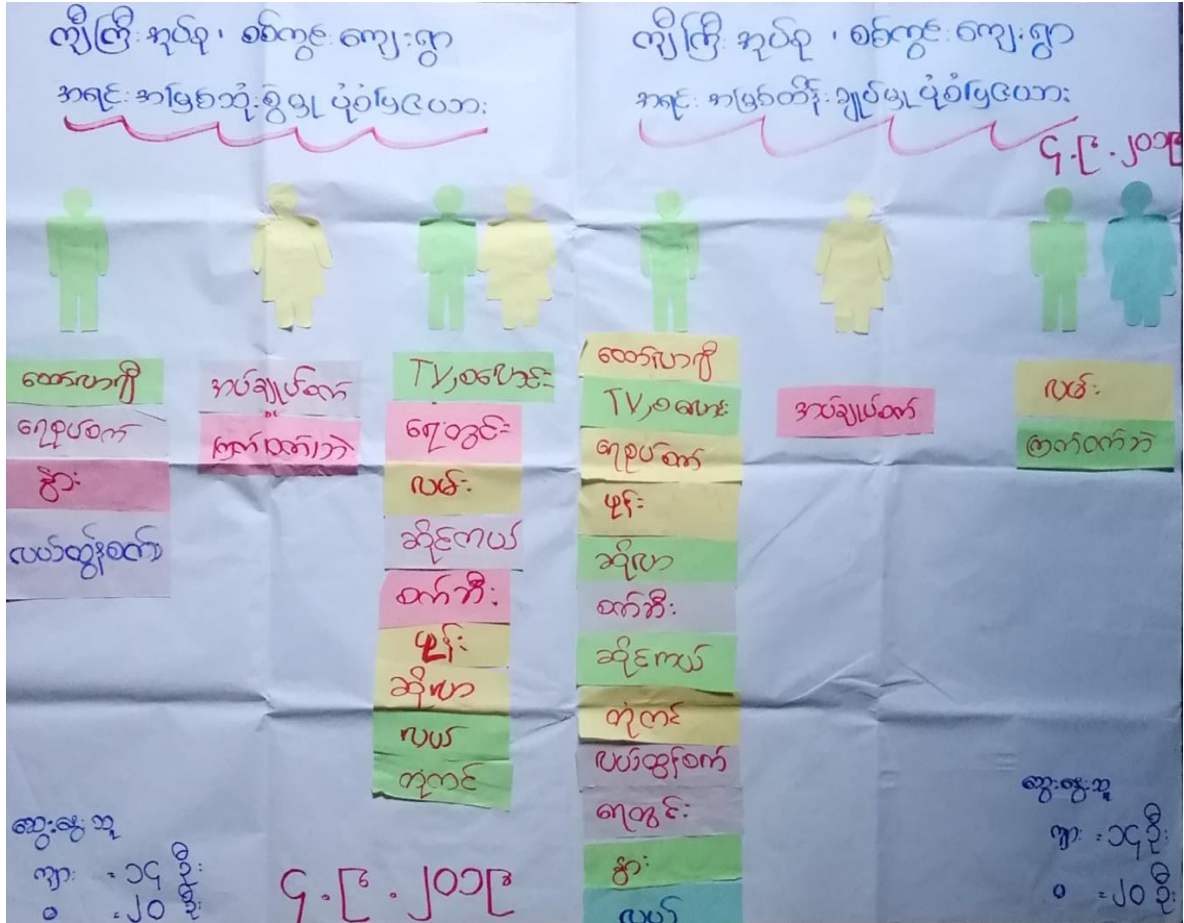 ကျီကြီးအုပ်စု၊ စစ်ကွင်းကျေးရွာ
အရင်းအမြစ်သုံးစွဲမှု ပုံစံပြဇယား
ထော်လာဂျီ
ရေစုပ်စက်
နွား
လယ်ထွန်စက်
အပ်ချုပ်စက်
ကြက်၊ဝက်၊ဘဲ
TV,စလောင်း
ရေတွင်း
လမ်း
ဆိုင်ကယ်
စက်ဘီး
ဖုန်း
ဆိုလာ
လယ်
တိုကင်
ဆွေးနွေးသူ
ကျား = ၁၄ ဦး
မ = ၂၀ ဦး
၄.၉.၂၀၁၉
ကျီကြီးအုပ်စု၊ စစ်ကွင်းကျေးရွာ
အရင်းအမြစ်ထိန်းချုပ်မှု ပုံစံပြဇယား
၄.၉.၂၀၁၉
ထော်လာဂျီ
TV,စလောင်း
ရေစုပ်စက်
ဖုန်း
ဆိုလာ
စက်ဘီး
ဆိုင်ကယ်
တိုကင်
လယ်ထွန်စက်
ရေတွင်း
နွား
လယ်
အပ်ချုပ်စက်
လမ်း
ကြက်ဝက်ဘဲ
ဆွေးနွေးသူ
ကျား = ၁၄ ဦး
မ = ၂၀ ဦး